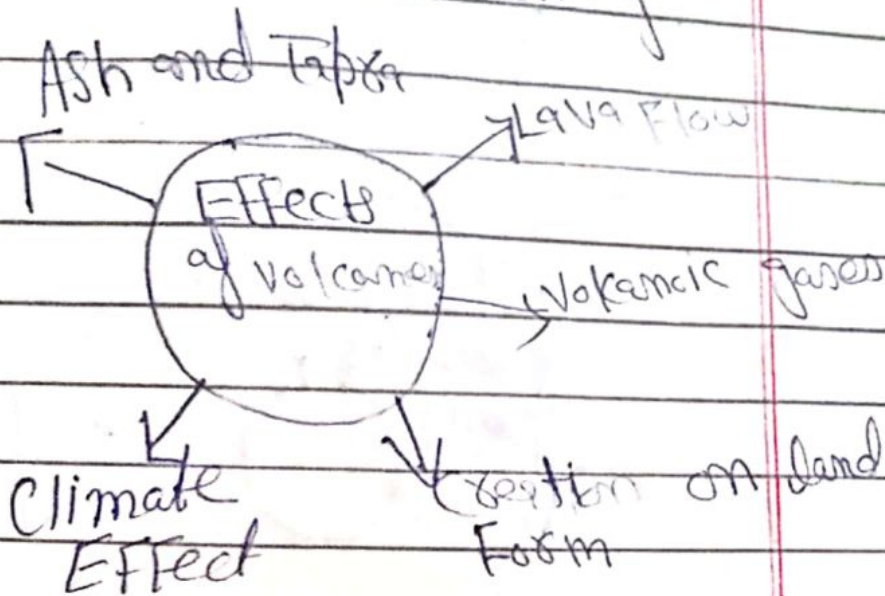 Ash and Tapra
Lava Flow
Effects
of volcanoes
Volcanoic gases
Climate
Effect
Creation on land
Form